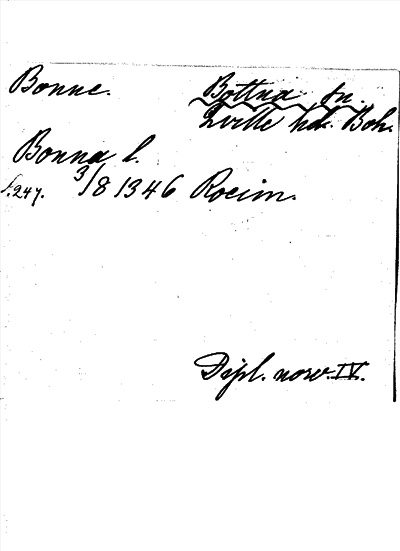 Bonne.
Bottna sn.
Qville hd. Boh.
Bonna l.
f. 247. 3/8 1346 Rocim.
Dipl. norv. IV.